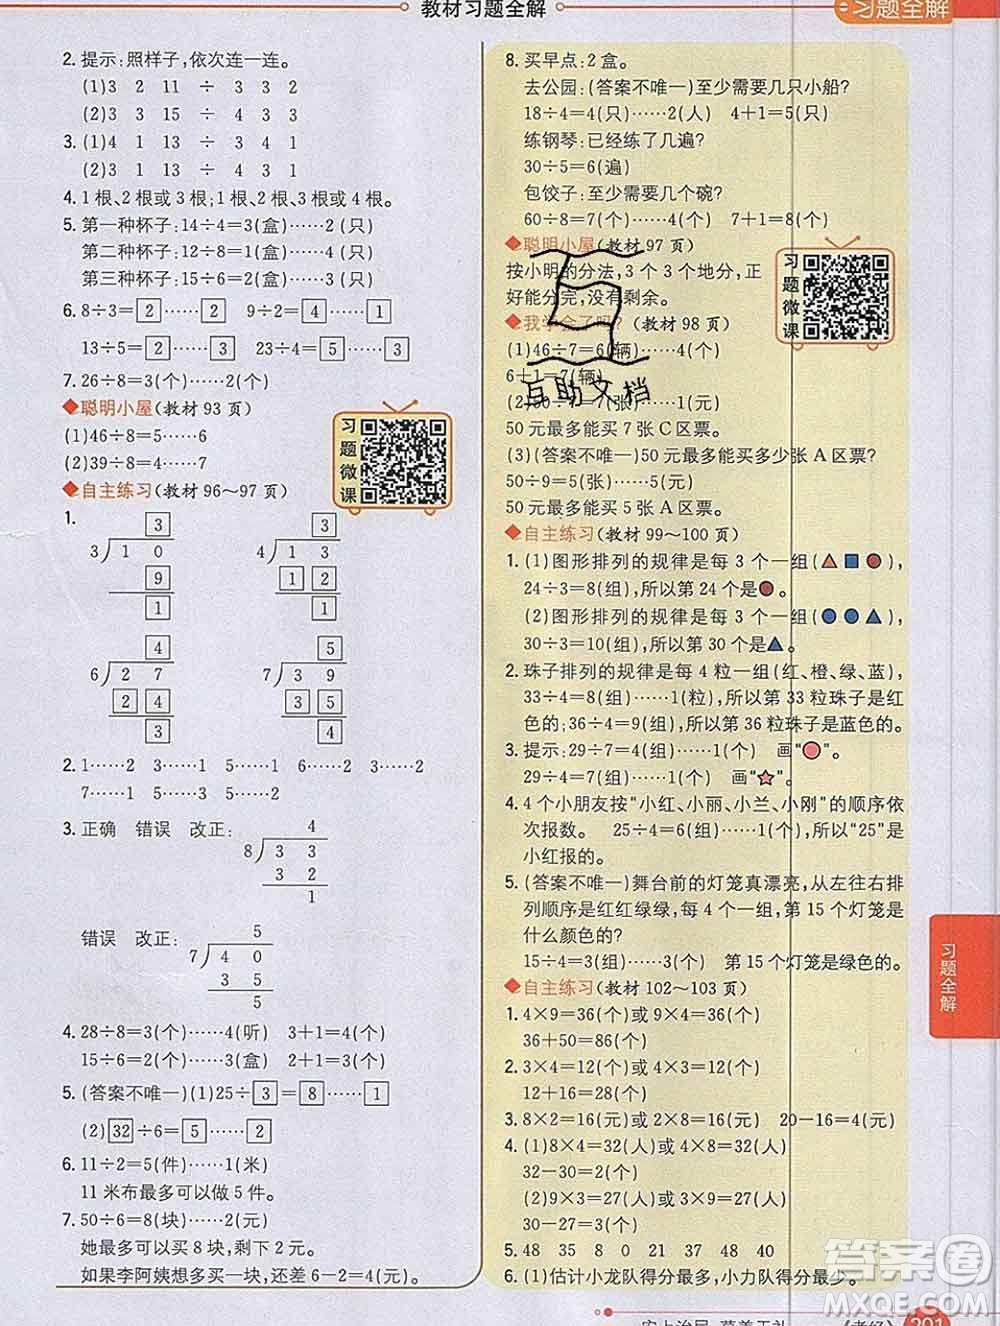 教材习题全解
习题全解
2. 提示:照样子,依次连一连。
(1)3 2 11 ÷ 3 3 2
(2)3 3 15 ÷ 4 3 3
3. (1)4 1 13 ÷ 3 4 1
(2)3 1 13 ÷ 4 3 1
4. 1 根、2 根或 3 根;1 根、2 根、3 根或 4 根。
5. 第一种杯子:14÷4=3(盒)……2 (只)
第二种杯子:12÷8=1(盒)……4 (只)
第三种杯子:12÷6=2(盒)
6. 8÷3=2……2 9÷2=4……1
13÷5=2……3 23÷4=5……3
7. 26÷8=3(个)……2(个)
◆聪明小屋(教材 93 页)
(1)46÷8=5……6
(2)39÷8=4……7
习题微课
◆自主练习(教材 96～97 页)
1.
3 3
3 1 0 4 1 3
9 1 2
1 1
4 5
6 2 7 7 3 9
2 4 3 5
3 4
2. 1……2 3……1 5……1 6……2 3……2
7……1 5……1 5……2
3. 正确 错误 改正:
4
8 3 3
3 2
1
错误 改正:
5
7 4 0
3 5
5
4. 28÷8=3(个)……4(听) 3+1=4(个)
15÷6=2(个)……3(盒) 2+1=3(个)
5. (答案不唯一)(1)25÷3=8……1
(2)32÷6=5……2
6. 11÷2=5(件)……1(米)
11 米布最多可以做 5 件。
7. 50÷6=8(块)……2(元)
她最多可以买 8 块,剩下 2 元。
如果李阿姨想多买一块,还差 6－2=4(元)。
8. 买早点:2 盒。
去公园:(答案不唯一)至少需要几只小船?
18÷4=4(只)……2(人) 4+1=5(只)
练钢琴:已经练了几遍?
30÷5=6(遍)
包饺子:至少需要几个碗?
60÷8=7(个)……4(个) 7+1=8(个)
◆聪明小屋(教材 97 页)
按小明的分法,3 个 3 个地分,正
好能分完,没有剩余。
习题微课
◆我学会了吗?(教材 98 页)
(1)46÷7=6(辆)……4(个)
6+1=7(辆)
(2)50÷7=7(张)……1(元)
50 元最多能买 7 张 C 区票。
(3)(答案不唯一)50 元最多能买多少张 A 区票?
50÷9=5(张)……5(元)
50 元最多能买 5 张 A 区票。
互助文档
◆自主练习(教材 99～100 页)
1. (1)图形排列的规律是每 3 个一组(▲■●),
24÷3=8(组),所以第 24 个是●。
(2)图形排列的规律是每 3 个一组(●●▲),
30÷3=10(组),所以第 30 个是▲。
2. 珠子排列的规律是每 4 粒一组(红、橙、绿、蓝),
33÷4=8(组)……1(粒),所以第 33 粒珠子是红
色的;36÷4=9(组),所以第 36 粒珠子是蓝色的。
3. 提示:29÷7=4(组)……1(个) 画“○”。
29÷4=7(组)……1(个) 画“☆”。
4. 4 个小朋友按“小红、小丽、小兰、小刚”的顺序依
次报数。 25÷4=6(组)……1(个),所以“25”是
小红报的。
5. (答案不唯一)舞台前的灯笼真漂亮,从左往右排
列顺序是红红绿绿,每 4 个一组,第 15 个灯笼是
什么颜色的?
15÷4=3(组)……3(个) 第 15 个灯笼是绿色的。
◆自主练习(教材 102～103 页)
1. 4×9=36(个)或 9×4=36(个)
36+50=86(个)
2. 3×4=12(个)或 4×3=12(个)
12+16=28(个)
3. 8×2=16(元)或 2×8=16(元) 20－16=4(元)
4. (1)4×8=32(人)或 8×4=32(人)
32－30=2(个)
(2)9×3=27(人)或 3×9=27(人)
30－27=3(个)
5. 48 35 8 0 21 37 48 40
6. (1)估计小龙队得分最多,小力队得分最少。
习题全解
答案圈
MXQE.COM
201